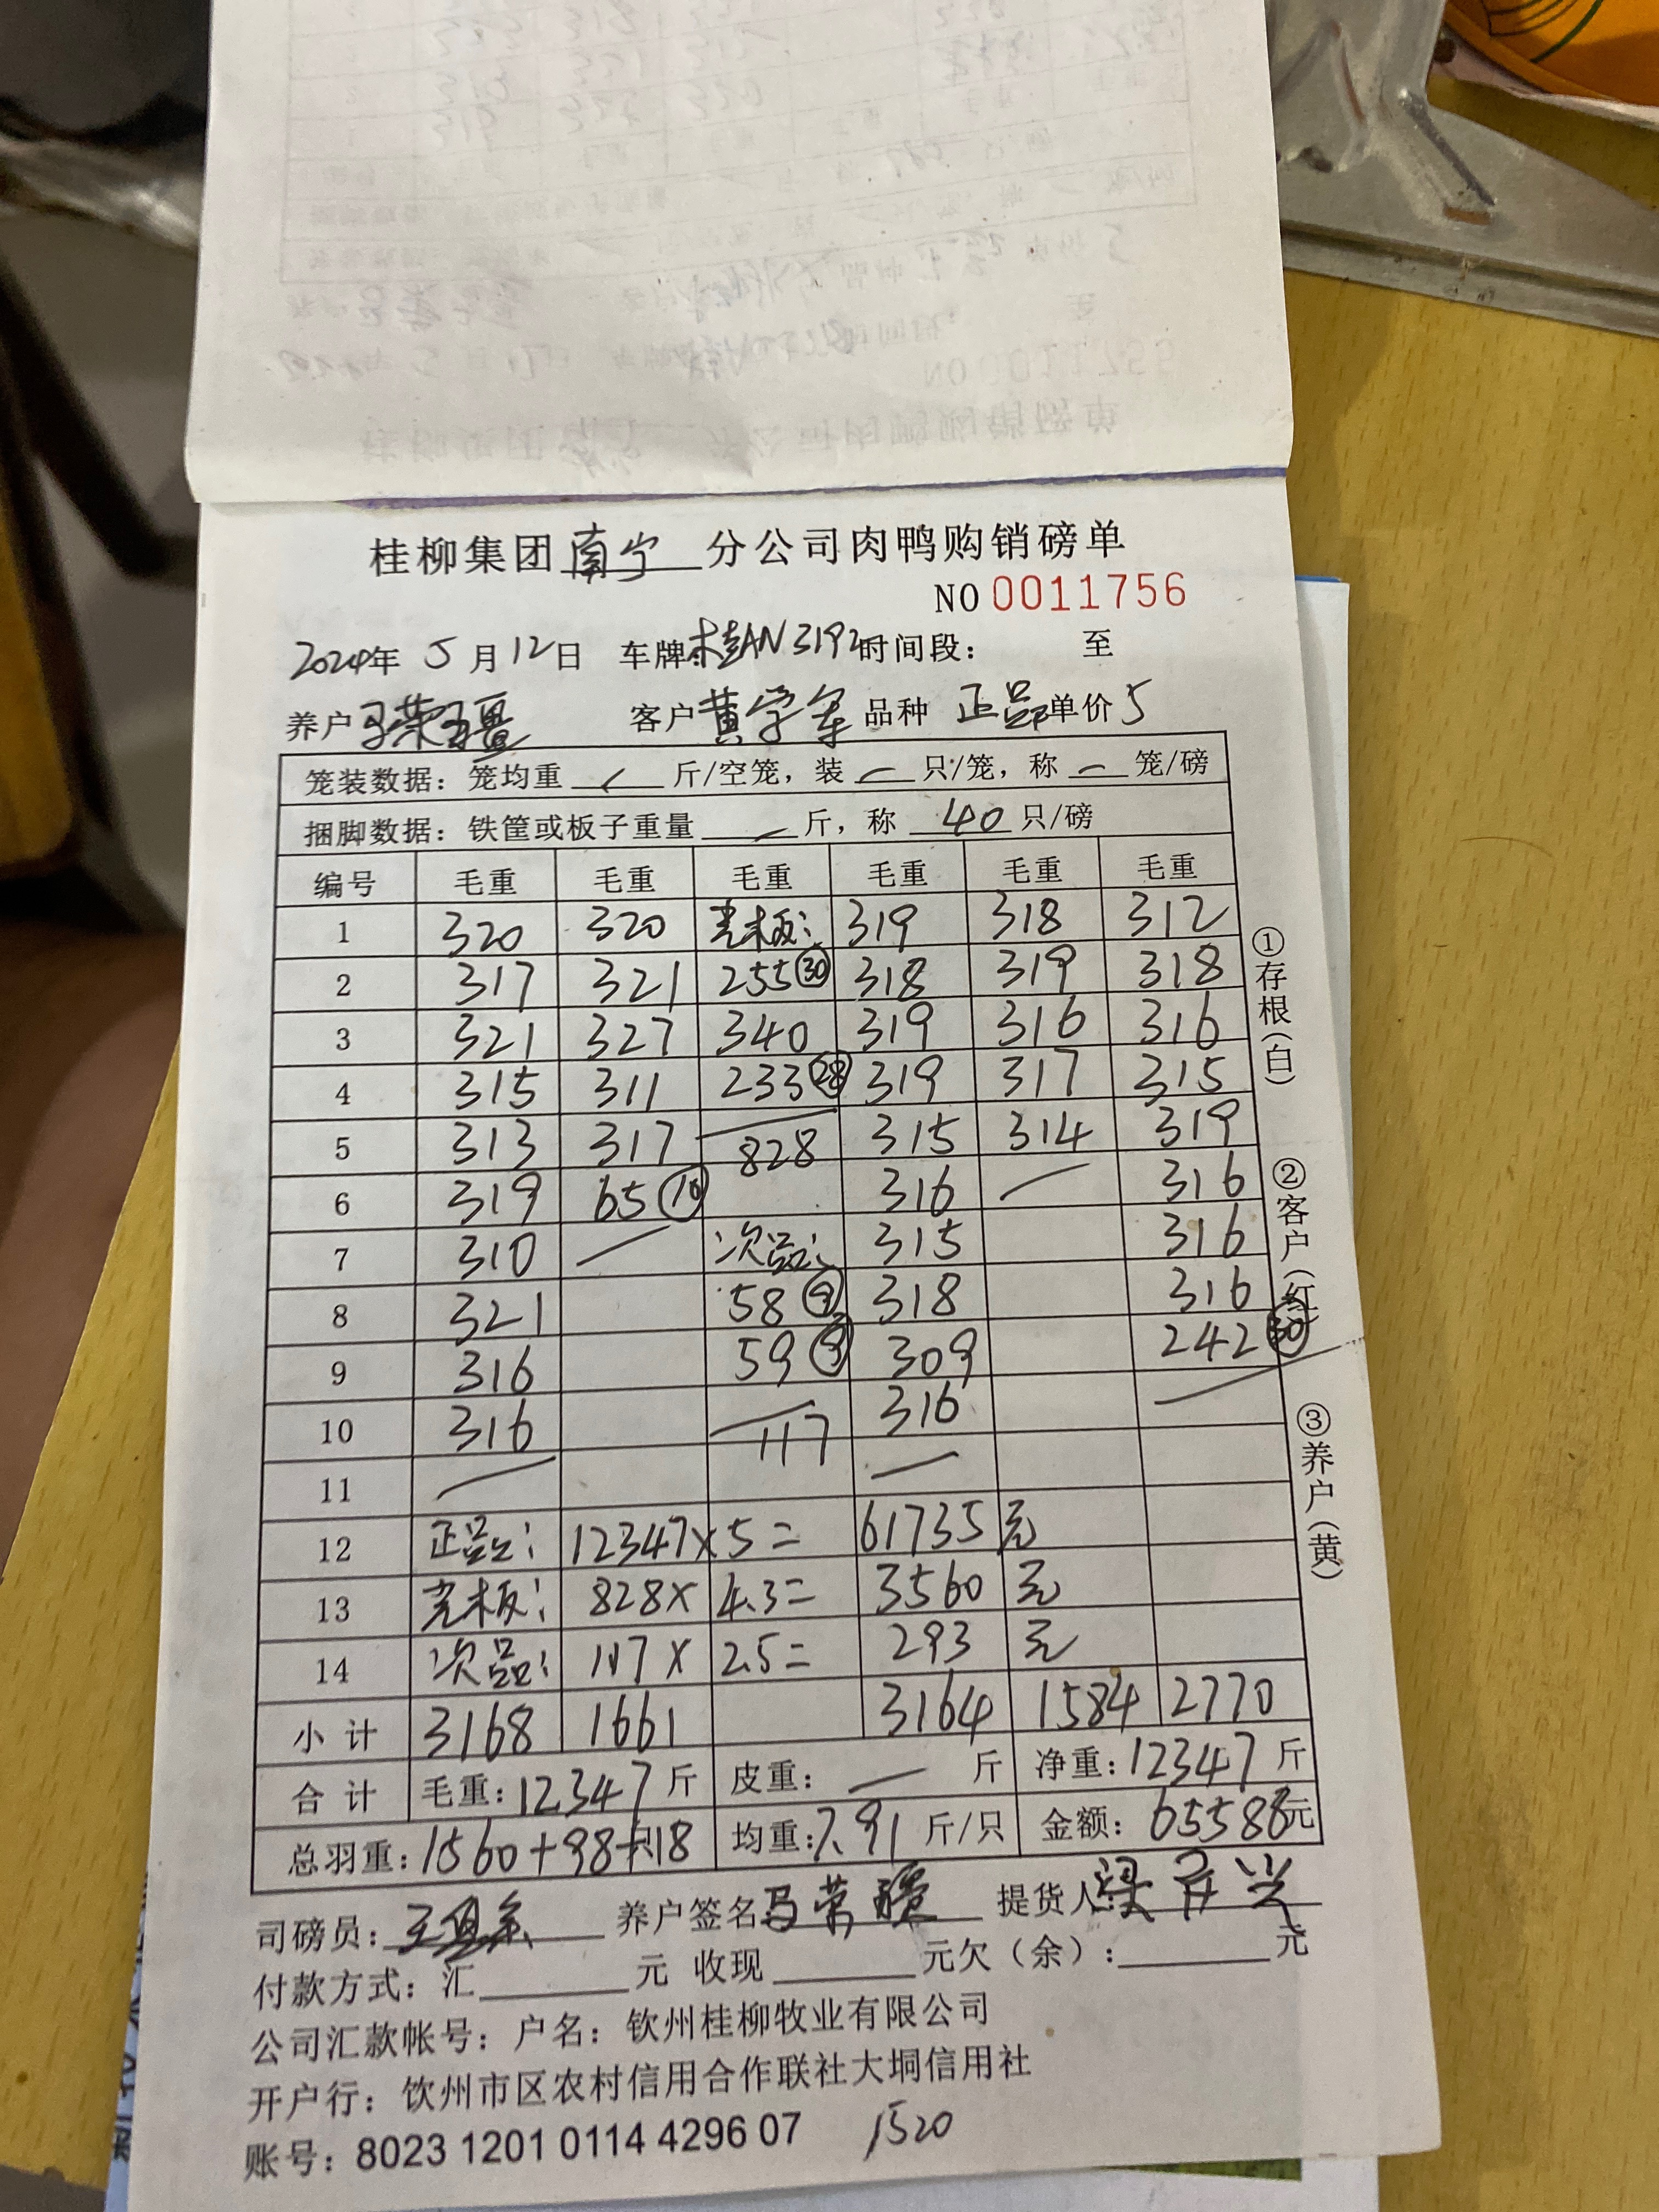 桂柳集团南宁分公司肉鸭购销磅单
NO 0011756
2024年 5月12日 车牌:桂AN3192时间段: 至
养户 客户黄学军 品种 正品 单价 5
笼装数据:笼均重 斤/空笼,装 一 只/笼,称 一 笼/磅
捆脚数据:铁筐或板子重量 斤,称 40 只/磅
编号 毛重 毛重 毛重 毛重 毛重 毛重
1 320 320 光板: 319 318 312
2 317 321 255㉚ 318 319 318
3 321 327 340 319 316 316
4 315 311 233㉘ 319 317 315
5 313 317 828 315 314 319
6 319 65⑩ 316 一 316
7 310 一 次品: 315 316
8 321 58⑨ 318 316
9 316 59⑨ 309 242㉚
10 316 117 316 一
11 一 一
12 正品: 12347×5= 61735 元
13 光板: 828× 4.3= 3560 元
14 次品: 117× 2.5= 293 元
小计 3168 1661 3164 1584 2770
合计 毛重:12347斤 皮重: 一 斤 净重:12347斤
总羽重:1560+98+18 只 均重:7.91斤/只 金额:65588元
司磅员: 养户签名 提货人:
付款方式:汇 元 收现 元欠(余): 元
公司汇款帐号:户名:钦州桂柳牧业有限公司
开户行:钦州市区农村信用合作联社大垌信用社
账号:8023 1201 0114 4296 07 1520
①存根(白)
②客户(红)
③养户(黄)